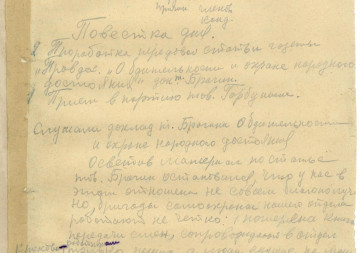 прием членов
канд.
Повестка дня.
1) Проработка передовой статьи газеты
"Правда", "О бдительности и охране народного
достояния" докл. т. Брагин.
Прием в партию тов. Горбунова.
Слушали доклад т. Брагина О бдительности
и охране народного достояния
Осветив материал по статье
тов. Брагин остановился, что у нас в
этом отношении не совсем благополуч
но, бригада самоохраны нашего отдела
работает не четко.
передачи смен, сопровождают в отдел